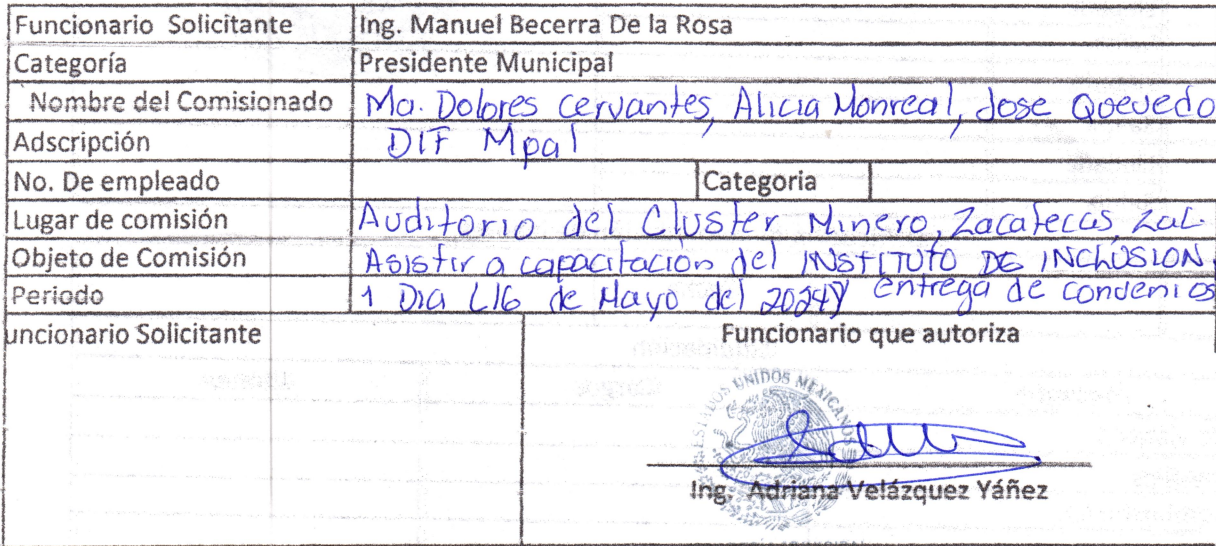 Funcionario Solicitante Ing. Manuel Becerra De la Rosa
Categoría Presidente Municipal
Nombre del Comisionado Ma. Dolores Cervantes, Alicia Monreal, Jose Quevedo
Adscripción DIF Mpal
No. De empleado Categoria
Lugar de comisión Auditorio del Cluster Minero, Zacatecas Zac.
Objeto de Comisión Asistir a capacitación del INSTITUTO DE INCLUSION,
Periodo 1 Dia (16 de Mayo del 2024) entrega de condenios
uncionario Solicitante Funcionario que autoriza
UNIDOS MEXICANOS
Ing. Adriana Velázquez Yáñez